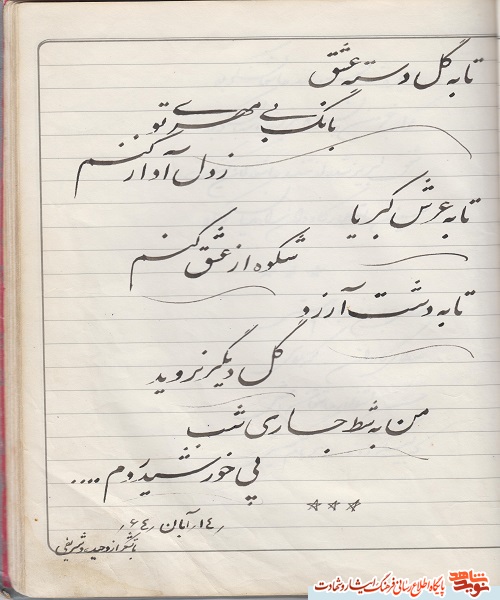 تا به گل دسته عشق
بانگ بی مهرے تو
ز دل آوار کنم
تا به عرش کبریا
شکوه از عشق کنم
تا به دشت آرزو
گل دیگر نروید
من به شط جاری شب
پی خورشید روم ....
***
۱۴/ آبان /۶۴
با تشکر از وحید شریفی
نوید شاهد پایگاه اطلاع رسانی فرهنگ ایثار و شهادت